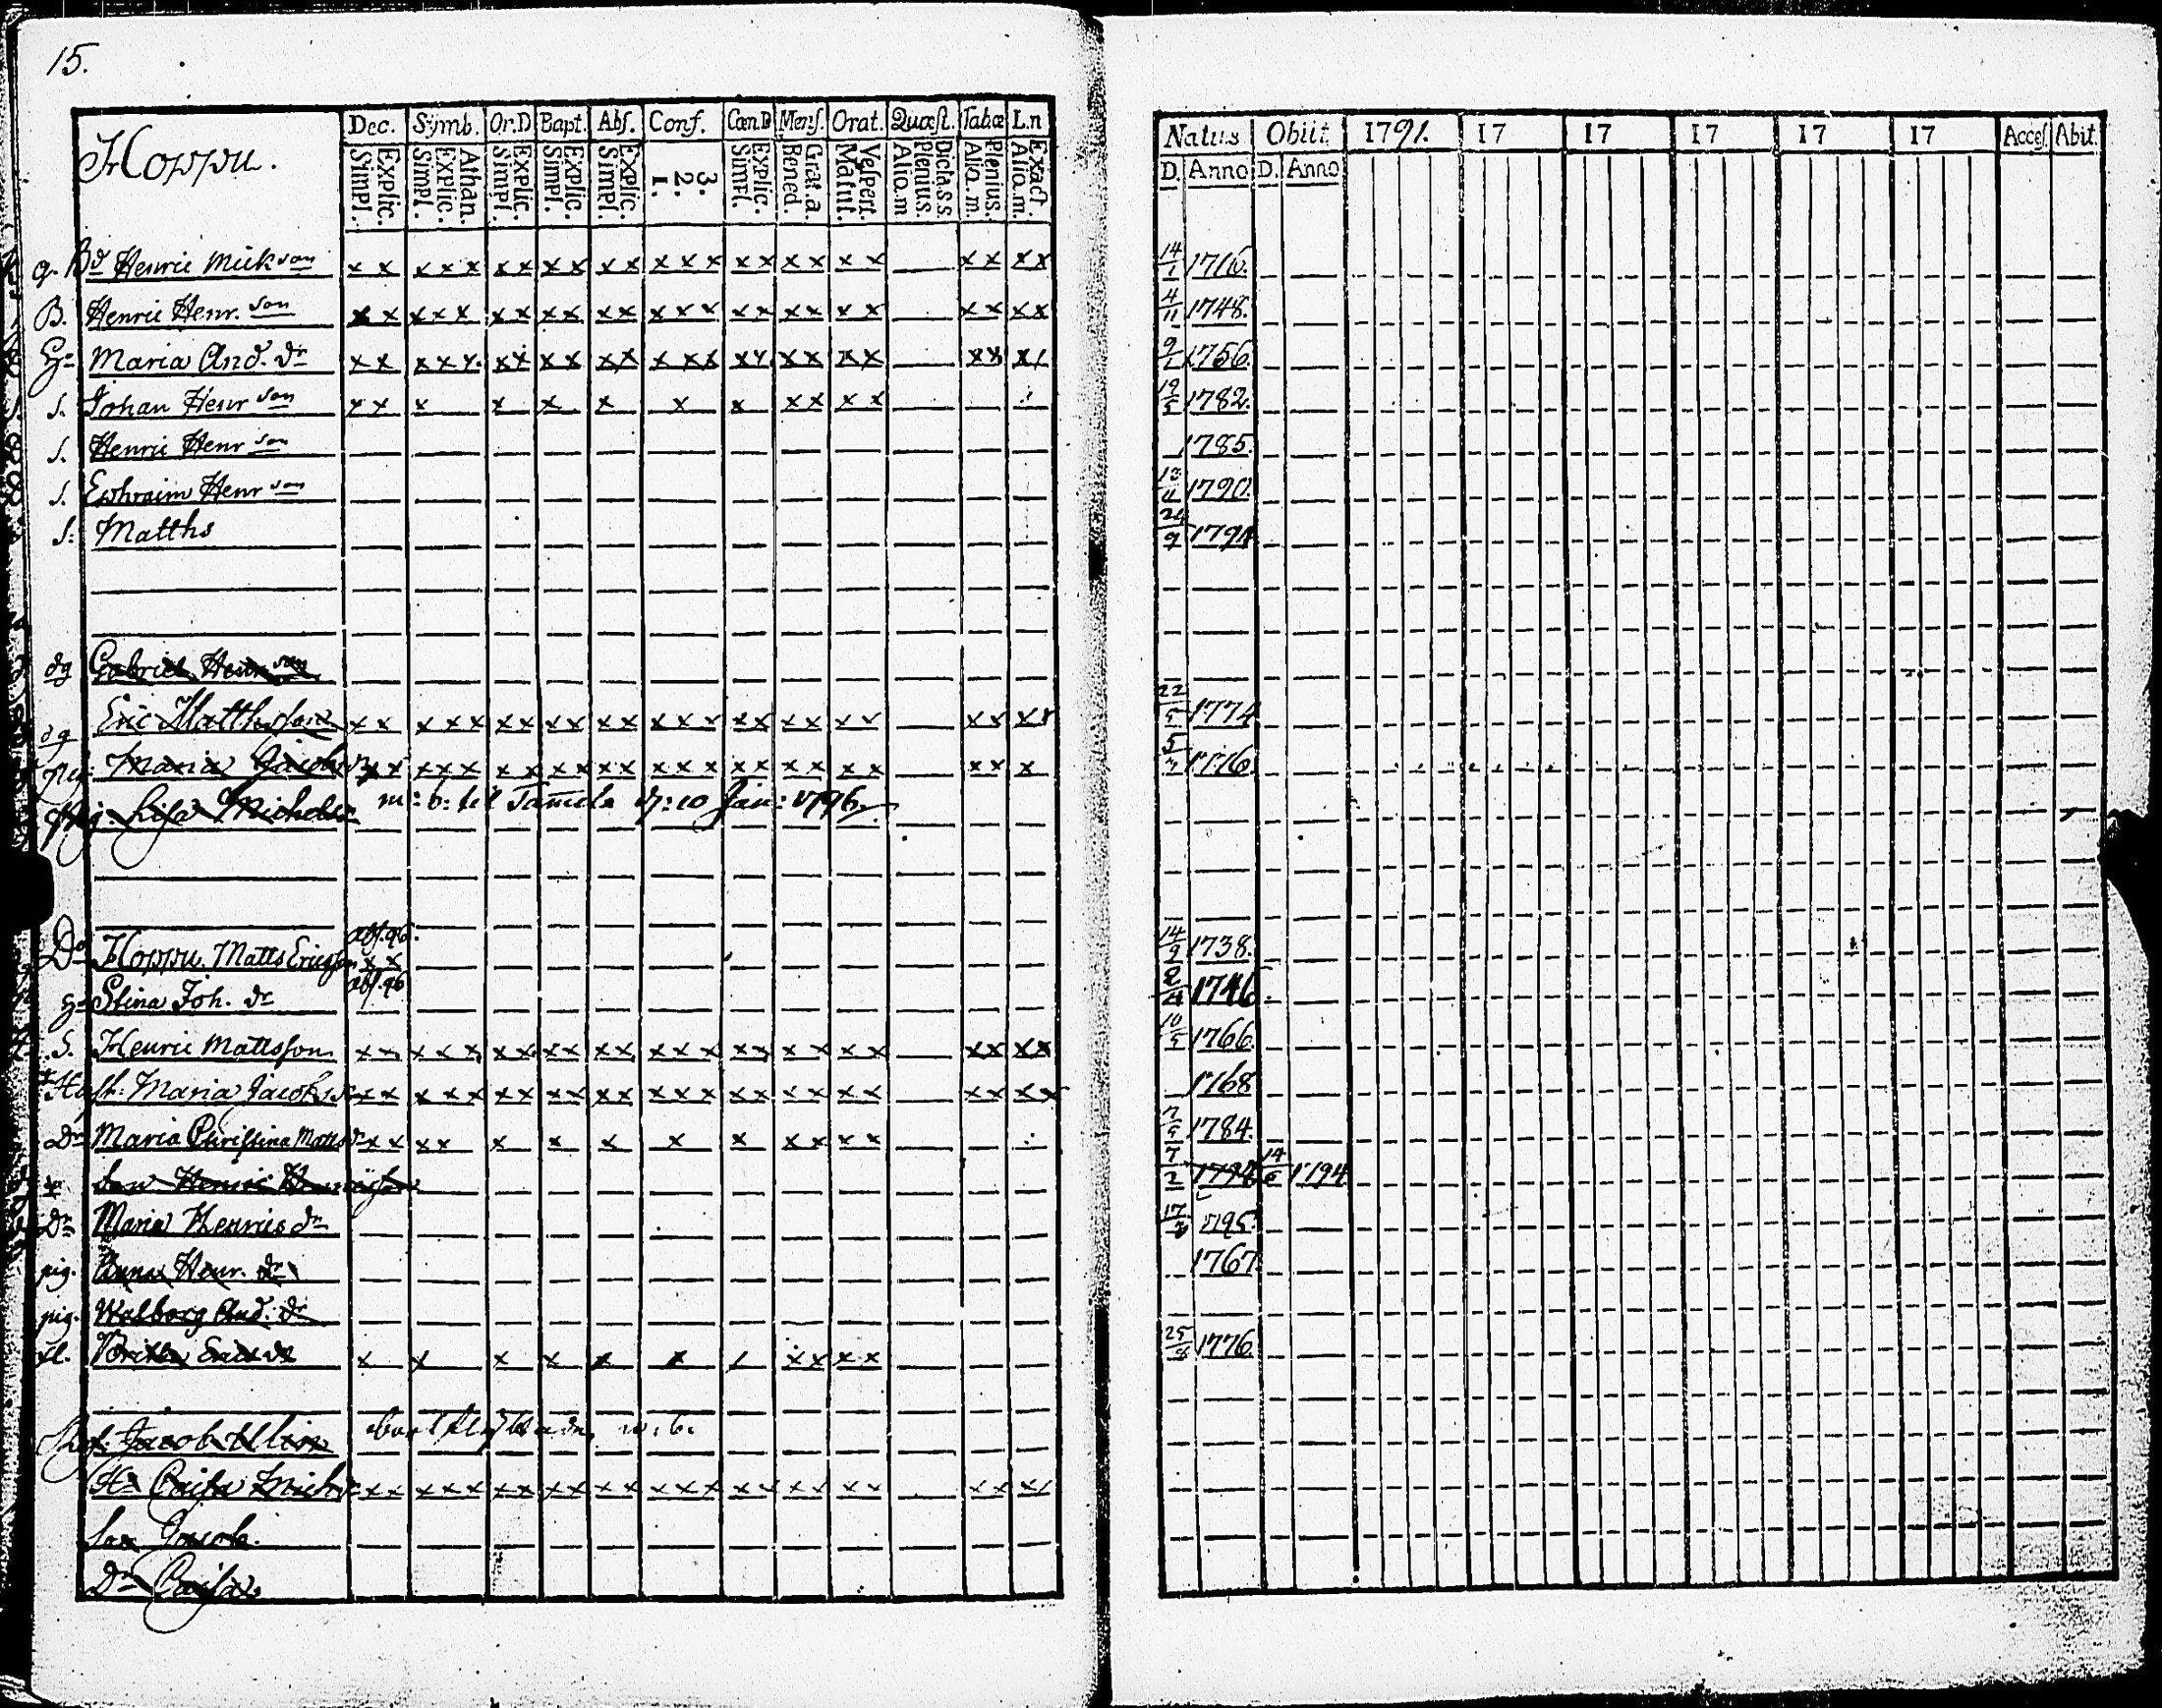 15.
Hoppu.
Dec. Symb. Or.D Bapt. Abs. Conf. Cœn.D Mens. Orat. Quæst. Tabæ L.n
Simpl. Explic. Simpl. Explic. Athan. Simpl. Explic. Simpl. Explic. Simpl. Explic. 1. 2. 3. Simpl. Explic. Bened. Grat.a. Matut. Vespert. Aliq.m Plenius. Dicta.s.s. Aliq.m. Plenius. Aliq.m. Exact.
Natus Obiit 1791. 17 17 17 17 17 Acces. Abit.
D. Anno D. Anno
g. Bd Henric Mick son x x x x x x x x x x x x x x x x x x x x x x x x x 14/1 1716.
B. Henric Henr. son x x x x x x x x x x x x x x x x x x x x x x x x x 4/11 1748.
Maria And. dr x x x x x x x x x x x x x x x x x x x x x x x x x 9/1 1756.
s. Johan Henr son x x x x x x x x x x x x 19/5 1782.
s. Henric Henr son 1785.
s. Ephraim Henr son 1790.
s: Matths 1791
dg Gabriel Henr son
dg Eric Matthsson x x x x x x x x x x x x x x x x x x x x x x x x x 22/5 1774
Maria Jacobs dr x x x x x x x x x x x x x x x x x x x x x x x x 1776.
Pig: Lisa Michels m: b: til Tamela d: 10 Jan: 1796.
abs. 96.
Hoppu. Matts Ericsson x x 14/9 1738.
abs. 96
Stina Joh. dr 1746.
S. Henric Mattsson x x x x x x x x x x x x x x x x x x x x x x x x x 10/5 1766.
Hust: Maria Jacobs x x x x x x x x x x x x x x x x x x x x x x x x x 1768
Dr Maria Christina Matts dr x x x x x x x x x x x x x 1784.
son Henric Henricsson 7/2 1794 1794
Dr Maria Henrics dr 1795.
pig. Anna Henr. dr 1767
pig. Walborg And. dr
Brita Erics dr x x x x x x x x x x x 25/8 1776.
Jacob m: b.
Caisa Mich x x x x x x x x x x x x x x x x x x x x x x x x x
Son Jacob.
Dr Caisa